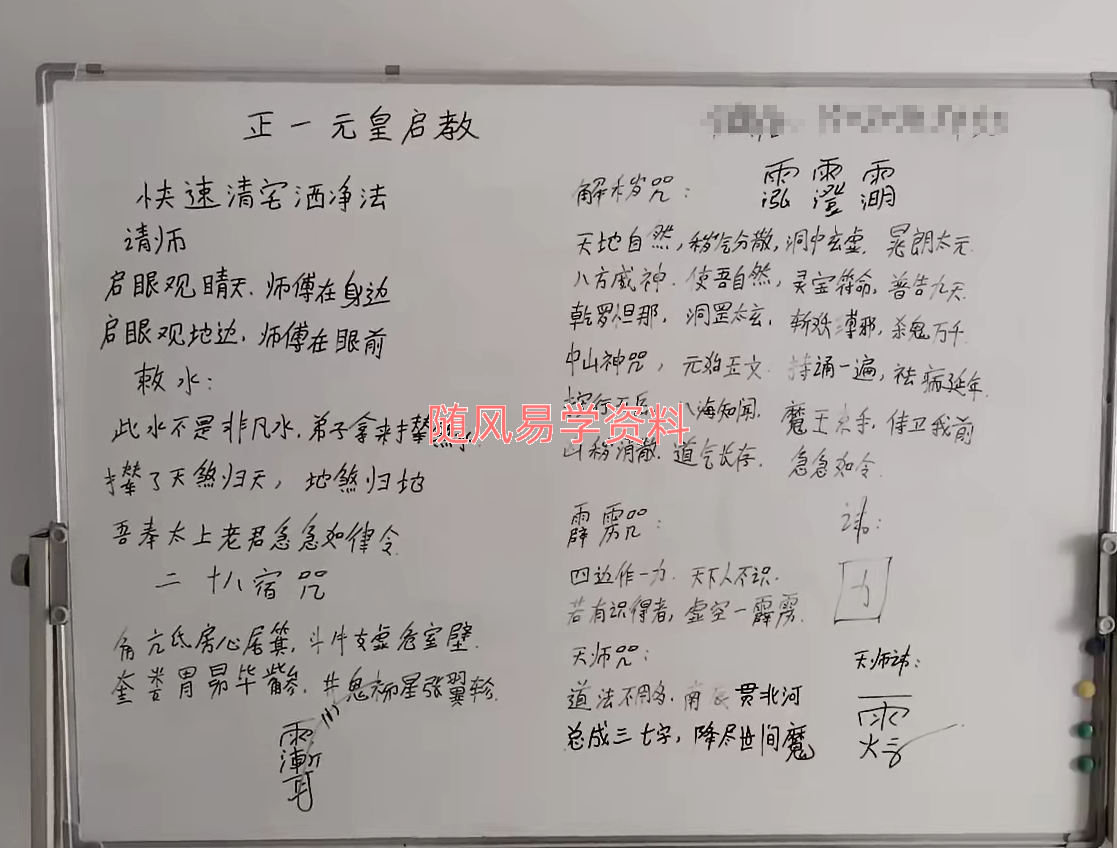 正一元皇启教
快速清宅洒净法
请师
启眼观晴天.师傅在身边
启眼观地边,师傅在眼前
敕水:
此水不是非凡水,弟子拿来
了天煞归天,地煞归地
吾奉太上老君急急如律令
二十八宿咒
角亢氐房心尾箕,斗牛女虚危室壁.
奎娄胃昴毕觜参.井鬼柳星张翼轸.
解秽咒:
天地自然,秽炁分散,洞中玄虚.晃朗太元.
八方威神.使吾自然,灵宝符命,普告九天.
乾罗怛那,洞罡太玄,斩妖缚邪,杀鬼万千.
中山神咒,元始玉文.持诵一遍,祛病延年.
八海知闻.魔王束手,侍卫我前
凶秽消散.道炁长存.急急如令.
霹雳咒:
讳:
四边作一力.天下人不识.
若有识得者,虚空一霹雳.
力
天师咒:
天师讳:
道法不用多,南辰贯北河
总成三七字,降尽世间魔
随风易学资料